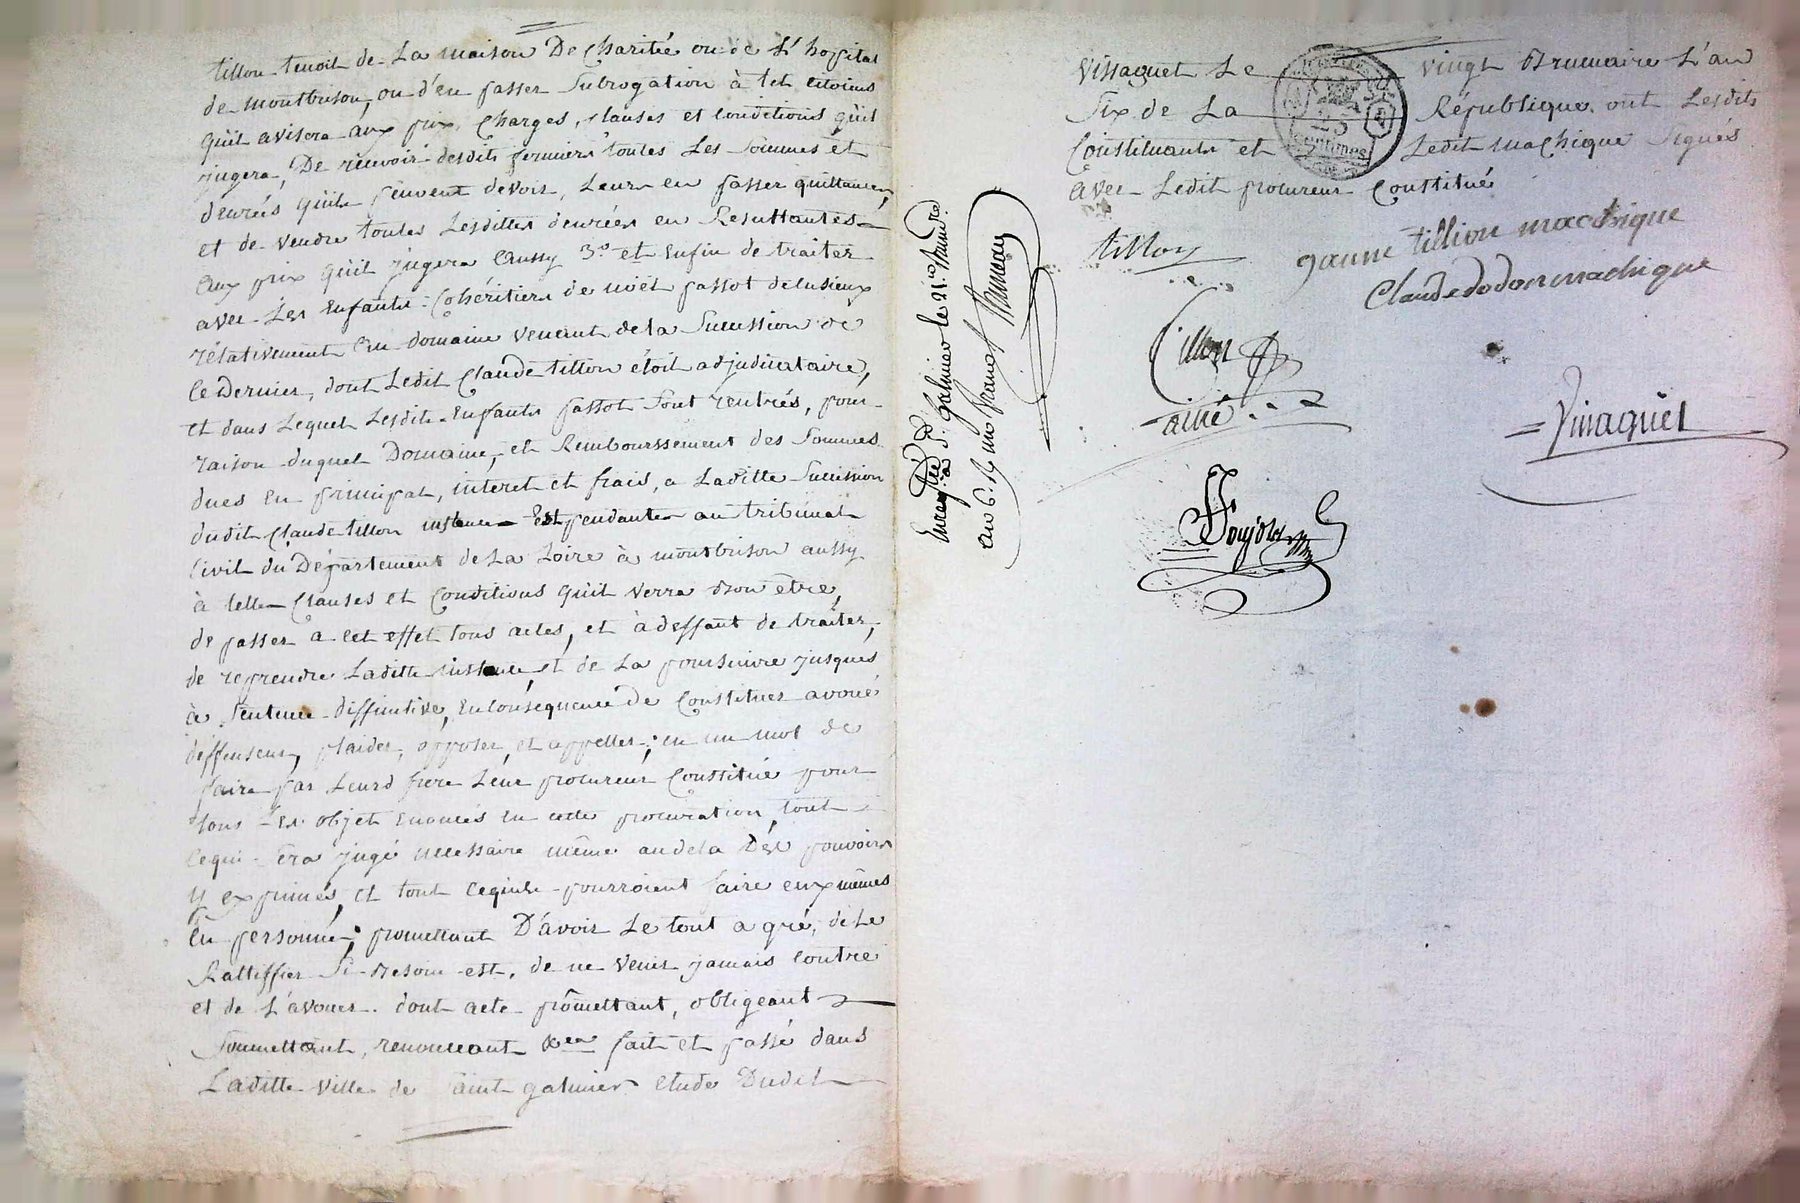 tillon tenoit de La maison De Charitée ou de L'hopital
de montbrison, ou d'en passer Subrogation à tel citoiens
qu'il avisera aux prix, Charges, clauses et Conditions qu'il
jugera, De recevoir desdits fermiers toutes Les Sommes et
denrées qu'ils peuvent devoir, Leurs en passer quittances,
et de vendre toutes Lesdittes denrées en Resultantes
aux prix qu'il jugera aussy 3.º et Enfin de traiter
avec Les Enfants Cohéritiers de noël passot
rélativement au domaine venant de la Succession de
Ce Dernier, dont Ledit Claude tillon étoit adjudicataire,
et dans Lequel Lesdits Enfants passot Sont rentrés, pour
raison duquel Domaine, et Remboursement des Sommes
dues en principal, interet et frais, a Laditte Succession
dudit Claude tillon instance Est pendante au tribunal
Civil du Département de La Loire à montbrison aussy
à telles Clauses et Conditions qu'il verra Bon etre,
de passer a cet effet tous actes, et à deffaut de traiter,
de reprendre Laditte instance et de La poursuivre jusques
à Sentence diffinitive, En Conséquence De Constituer avoué
déffenseur, plaider, opposer, et appeller; en un mot de
faire par Leurd frere Leur procureur Constitué pour
tous Les objets Enoncés en cette procuration, tout
Ce qui Sera jugé necessaire même audela Des pouvoirs
y exprimés, et tout Ce qu'ils pourroient faire eux mêmes
En personne; promettant D'avoir Le tout a gré, de Le
Rattiffier Si Besoin est, de ne venir jamais Contre
et de L'avouer. dont acte promettant, obligeant
Soumettant, renonceant &ca fait et passé dans
Laditte ville de Saint galmier etude Dudit
Vissaguet Le vingt Brumaire L'an
Six de La République. ont Lesdits
Constituants et Ledit machique Signés
avec Ledit procureur Constitué
tillon
janne tillion macchique
Claude dodon machique
tillon
ainé
Vissaguet
25
Centimes
Enregtré a St. Galmier le 21 Brumre
an 6. un franc